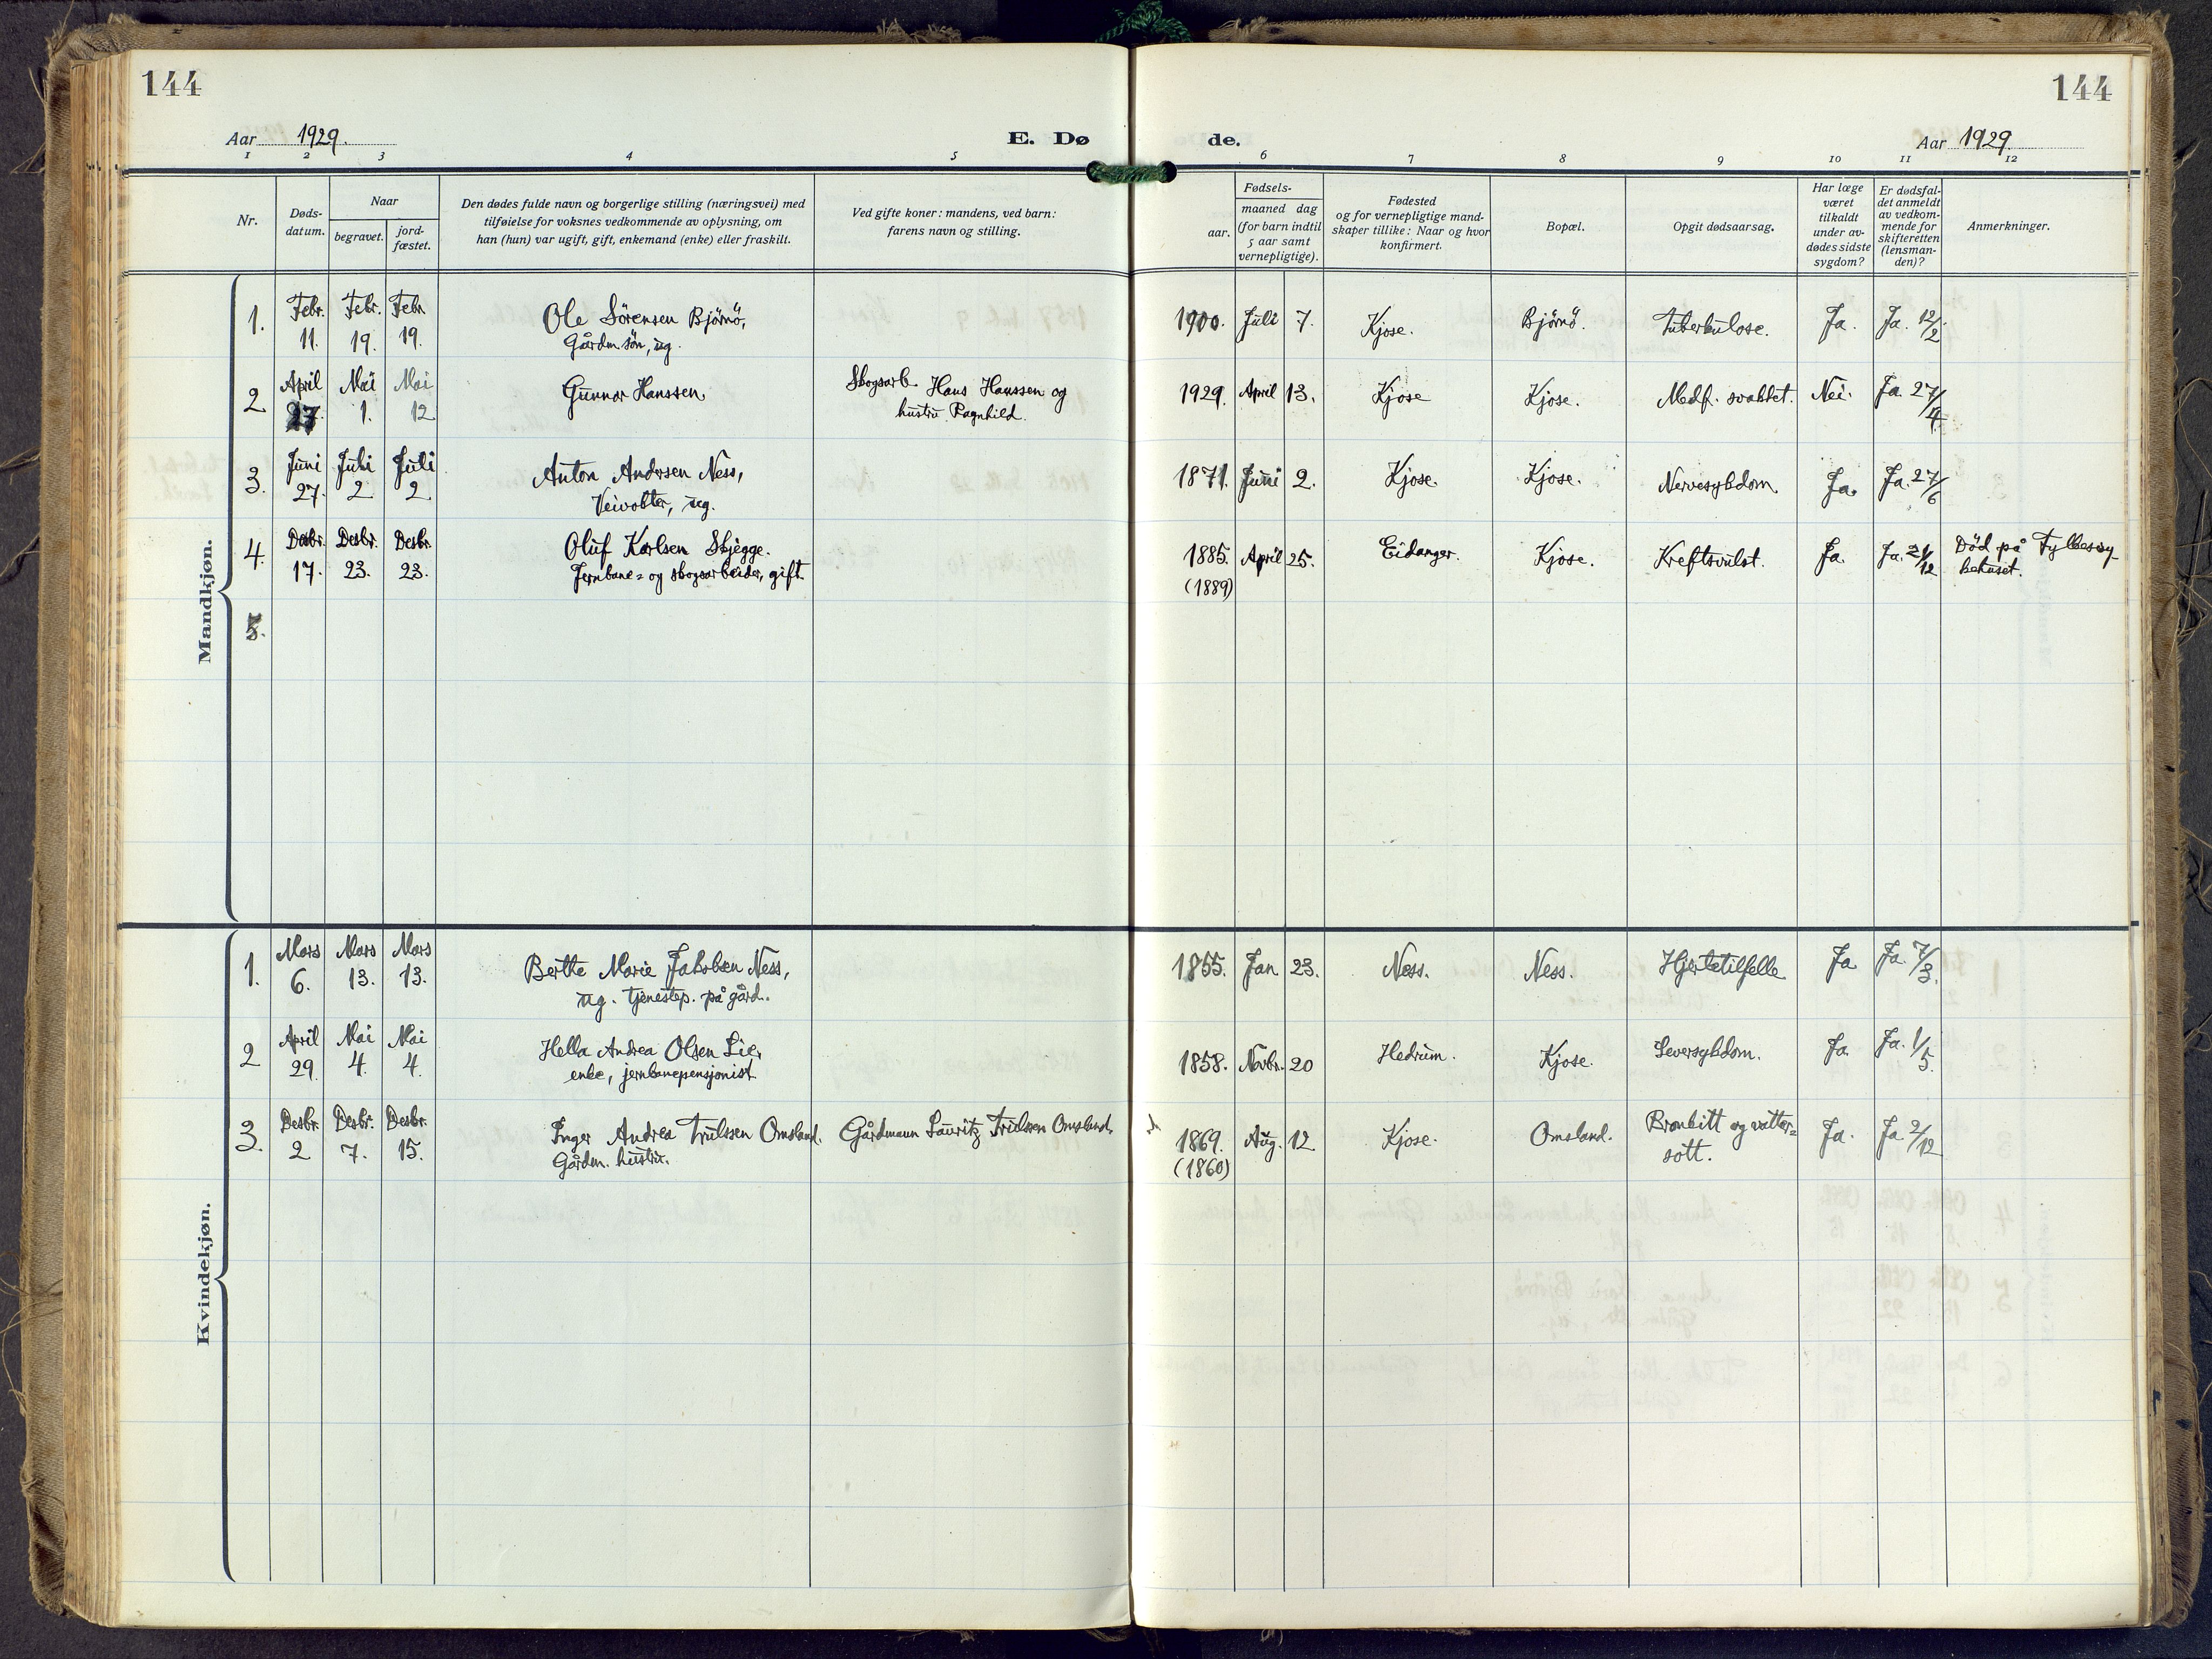 144
144
Aar 1929.
E. Dø
de.
Aar 1929.
1 2 3 4 5 6 7 8 9 10 11 12
Nr.
Døds-
datum.
Naar
begravet.
jord-
fæstet.
Den dødes fulde navn og borgerlige stilling (næringsvei) med
tilføielse for voksnes vedkommende av oplysning, om
han (hun) var ugift, gift, enkemand (enke) eller fraskilt.
Ved gifte koner: mandens, ved barn:
farens navn og stilling.
Fødsels-
aar.
maaned dag
(for barn indtil
5 aar samt
vernepligtige).
Fødested
og for vernepligtige mand-
skaper tillike: Naar og hvor
konfirmert.
Bopæl.
Opgit dødsaarsag.
Har læge
været
tilkaldt
under av-
dødes sidste
sygdom?
Er dødsfal-
det anmeldt
av vedkom-
mende for
skifteretten
(lensman-
den)?
Anmerkninger.
Mandkjøn.
1. Febr. 11. Febr. 19. Febr. 19. Ole Sörensen Björnö,
Gårdm. sön, ug.
1900. Juli 7. Kjose. Björnö. Tuberkulose. Ja. Ja. 12/2.
2 April 27. Mai 1. Mai 12 Gunnar Hanssen. Skogsarb. Hans Hanssen og
hustru Ragnhild.
1929. April 13. Kjose Kjose. Medf. svakhet. Nei. Ja. 27/4.
3. Juni 27. Juli 2 Juli 2 Anton Andersen Ness,
Veivokter, ug.
1871. Juni 2. Kjose. Kjose. Nervesykdom. Ja. Ja. 27/6
4. Desbr. 17. Desbr. 23. Desbr. 23. Oluf Karlsen Skjegge.
Jernbane= og skogsarbeider, gift.
1885. (1889) April 25. Eidanger. Kjose. Kreftsvulst. Ja. Ja. 21/12 Död på Fylkessy-
kehuset.
5.
Kvindekjøn.
1. Mars 6. Mars 13. Mars 13. Berthe Marie Jakobsen Ness,
ug. tjenestep. på gård.
1855. Jan 23. Ness. Ness. Hjertetilfelle Ja Ja. 7/3.
2 April 29. Mai 4. Mai 4. Hella Andrea Olsen Lie,
enke, jernbanepensjonist
1858. Novbr. 20 Hedrum. Kjose. Leversykdom. Ja. Ja. 1/5.
3. Desbr. 2 Desbr. 7. Desbr. 15. Inger Andrea Trulssen Omsland.
Gårdm. hustru.
Gårdmann Lauritz Trulssen Omsland.
1869. (1860) Aug. 12 Kjose. Omsland. Bronkitt og vatter=
sott.
Ja. Ja. 2/12